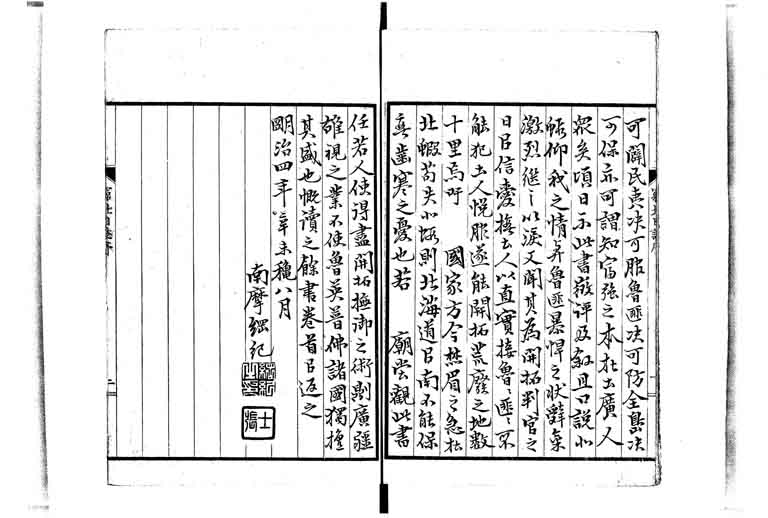 可闢民夷决可服魯匪决可防全島决
可保亦可謂知富強之本在土廣人
衆矣頃日示此書嶶評及叙且口説北
蝦仰我之情與魯匪暴悍之状辭氣
激烈継之以淚又聞其為開拓判官之
日以信愛撫土人以直實接魯匪匪不
能犯土人悦服遂能開拓荒廢之地数
十里烏呼 國家方今燃眉之急在
北蝦苟失北蝦則北海道以南不能保
無齒寒之憂也若 廟堂觀此書
任若人使得盡開拓撫御之術則廣疆
雄視之業不使魯英普佛諸國獨擅
其盛也慨讀之餘書卷首以返之
明治四年辛未穐八月
南摩綱紀